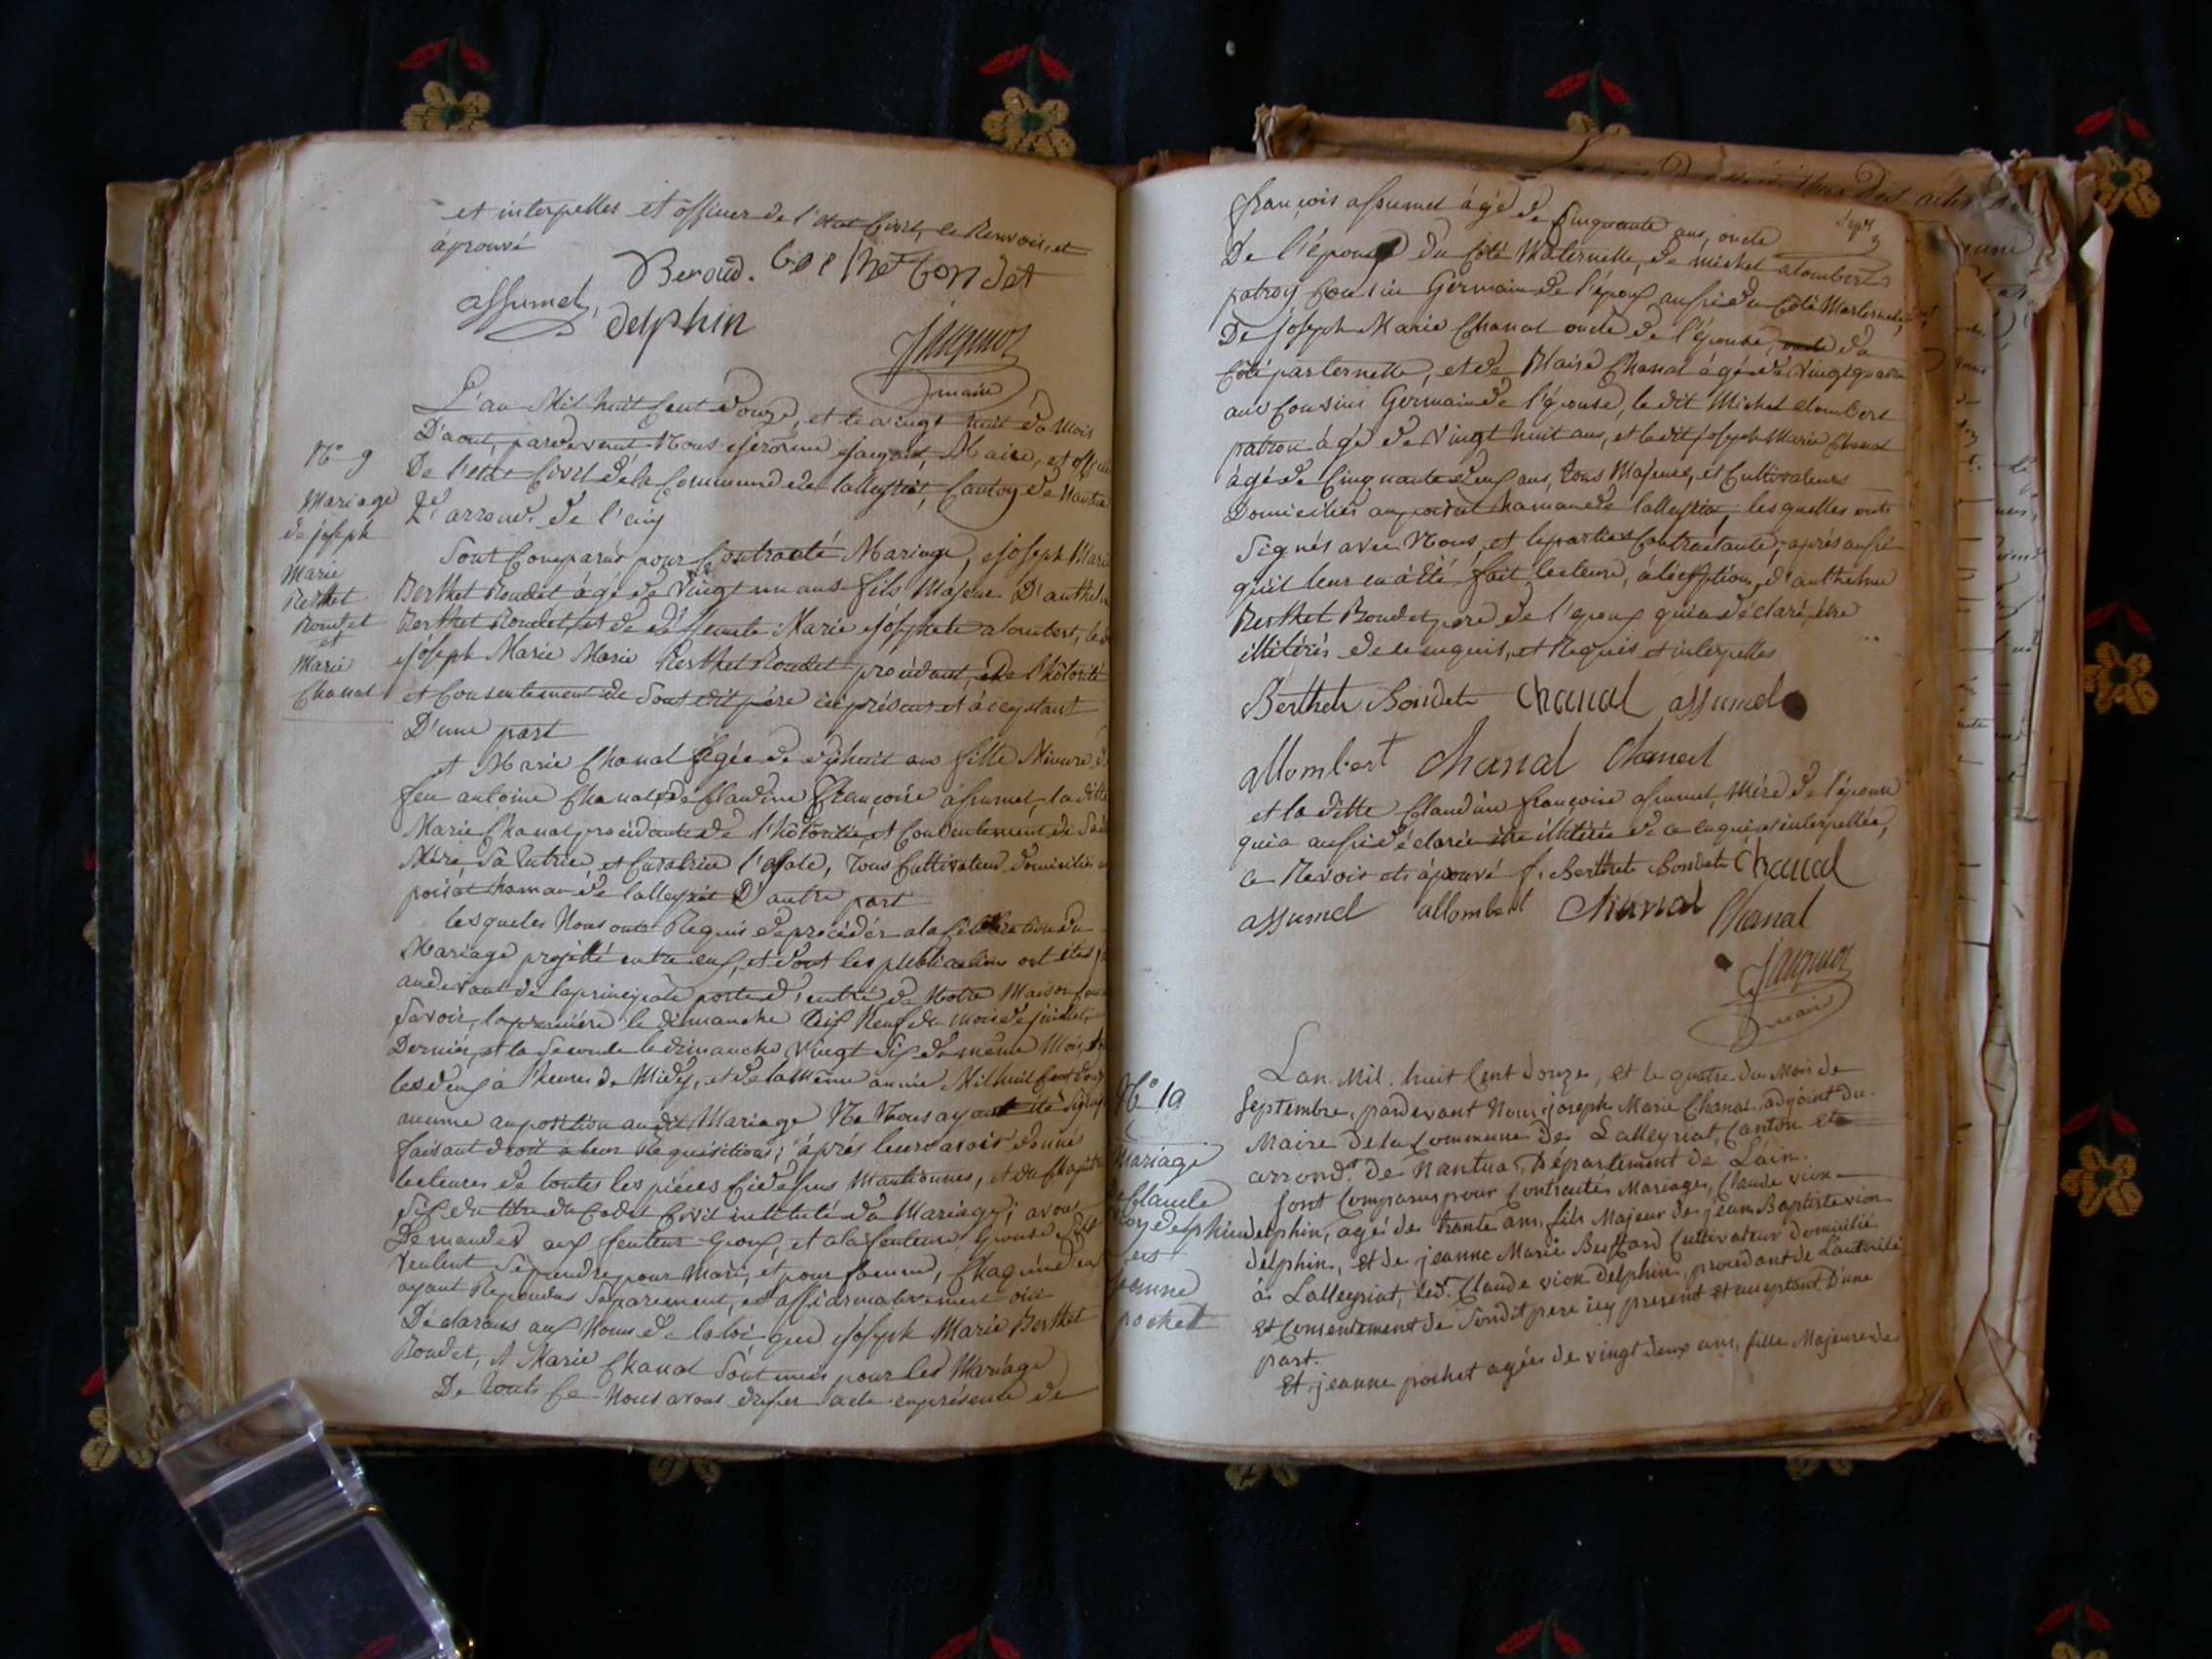 et interpelles et officier de l'état Civil, le Renvois, et
áprouvé
Beroud. Berthet bondet
assumel, delphin
Jaquinot
maire
L'an Mil huit Cent douze, et le vingt huit du Mois
D'aout, pardevant Nous jerôme Maire, et officier
De l'état Civil de la Commune de lalleyriat, Canton de Nantua
arrond. de l'ain
N° 9
Mariage
de joseph
Marie
Berthet
Bondet
et
Marie
Chanal
Sont Comparus pour Contracté Mariage, joseph Marie
Berthet Bondet ágé de Vingt un ans fils Majeur D'anthelme
Berthet Bondet, et de déffeunte Marie joséphete alombert, le
joseph Marie Marie Berthet Bondet procédant, de l'hôtorité
et Consentement de Sont dit pére ici présent et áceptant
D'une part
et Marie Chanal ágée de dixhuit ans fille Mineure de
feu antoine Chanal, de Claudine Françoise assumel, la ditte
Marie Chanal procédante de l'hôtorité, et Consentement de Sa
Mére, Sa tutrice, et Curatrice l'égale, tous Cultivateur domiciliés au
poisat hamau de lalleyriat D'autre part
lesqueles Nous ont Requis de procédér a la Célébration du
Mariage projetté entre eux, et dont les publications ont étés
audevant de la principale porte d'entré de Notre Maison
Savoir, la premiére le dimanche dix Neuf du mois de juillet,
Dernier, et la Seconde le dimanche Vingt Six du même Mois,
les deux à l'heures de Midy, et de la Même année Mil huit Cent douze
aucune aupposition audit Mariage Ne Nous ayant été Signifié
faisant droit á leur Réquisitions; áprés leurs avoir donnés
lecteures de toutes les piéces Cidessus Mantionnes, et du Chapitre
Six du titre du Codes Civil intitulé du Mariage; avons
Demandes aux feuteur Epoux, et a la feuteure Epouse S'ils
Veulent Se prendre pour Mari, et pour famme, Chaqu'un d'eux
ayant Repondus Séparement, et affiarmativement oui
Déclarons aux Noms de la loi que joseph Marie Berthet
Bondet, et Marie Chanal Sont unis pour les Mariage
De tout Ce Nous avons dresser acte enprésence de
françois assumel ágé de Cinquante ans, oncle
De l'épouse du Coté Maternelle, de michel alombert
patroy Cousin Germain de l'époux aussi du Coté Marternelle,
De joseph Marie Chanal oncle de l'épouse, du
Coté parternelle, et de Blaise Chanal ágé de Vingtquatre
ans Cousins Germain de l'épouse, le dit Michel alombert
patron ágé de Vingt huit ans, et le dit joseph Marie Chanal
ágé de Cinquante deux ans, tous Majeurs, et Cultivateurs
Domiciliés au poisat hamau de lalleyriat, les quelles onts
Signés avec Nous, et le parties Contractante, aprés aussi
qu'il leur en á été fait lecteure, á lexsption, d'anthelme
Berthet Bondet, pere de l'epoux qui a déclaré, être
illitéré de ce enquis, et Requis et interpelles
Berthete Bondete Chanal assumel
allombert Chanal Chanal
et la ditte Claudine françoise assumel, Mére de l'épouse
qui a aussi déclarée être illitérée de ce enquis et interpellée,
ce Revois et áprouvé J. Berthete Bondete Chanal
assumel allombert Chanal Chanal
Jaquinot
maire
N° 10
Mariage
de Claude
vion delphin
et
jeanne
pochet
Lan. Mil. huit Cent douze, et le quatre du Mois de
Septembre, pardevant Nous, joseph Marie Chanal, adjoint du
Maire De la Commune De Lalleyriat, Canton et
arrond.t de Nantua, Département de Lain.
Sont Comparus pour Contractés Mariages, Claude vion
delphin, agé de trante ans, fils Majeur de jean Baptiste vion
delphin, et de jeanne Marie Buffard Cultivateur domicilié
á Lalleyriat, led.t Claude vion delphin, procedant de L'autorité
Et Consentement de Sondit pere icy présent et aceptant D'une
part.
Et jeanne pochet agées de vingt deux ans, fille Majeure de